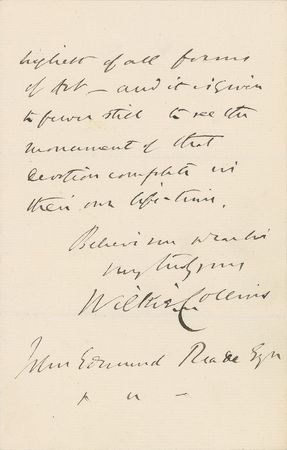 highest of all forms
of Art – and it is given
to fewer still to see the
monument of that
devotion complete in
their own life-time.
Believe me dear Sir
very truly yours
Wilkie Collins
John Edmund Reade Esqre